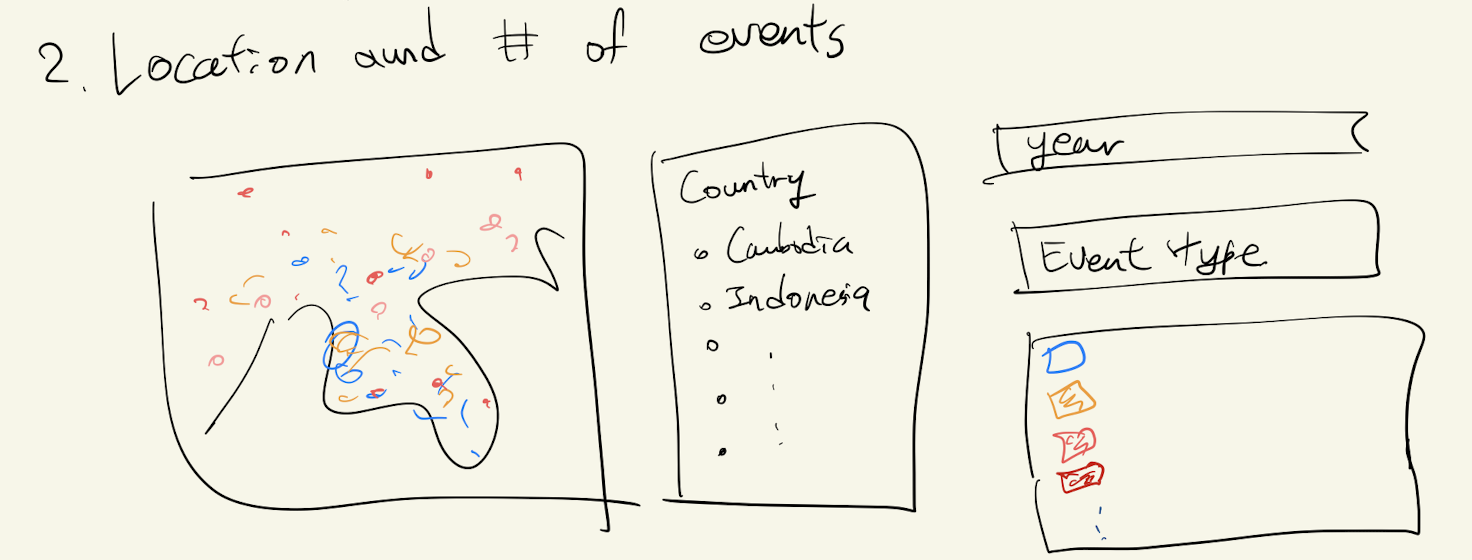 2. Location aund # of events
Country
Cambodia
Indonesia
year
Event type